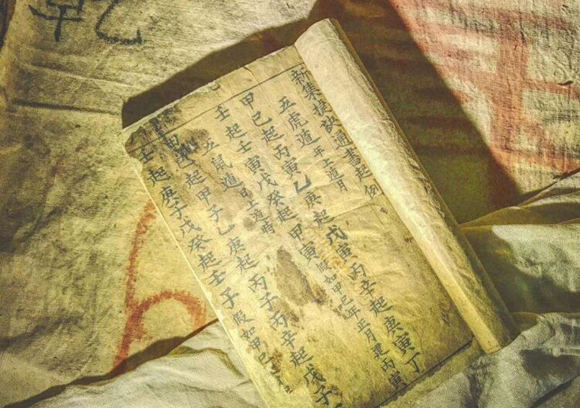 新集捷訣通書起例
五虎遁年上遁月
甲己起丙寅乙庚起戊寅丙辛起庚寅丁
壬起壬寅戊癸起甲寅假如甲己年正月是丙寅
五鼠遁日上遁時
起甲子乙庚起丙子丙辛起戊子
壬起庚子戊癸起壬子假如甲己